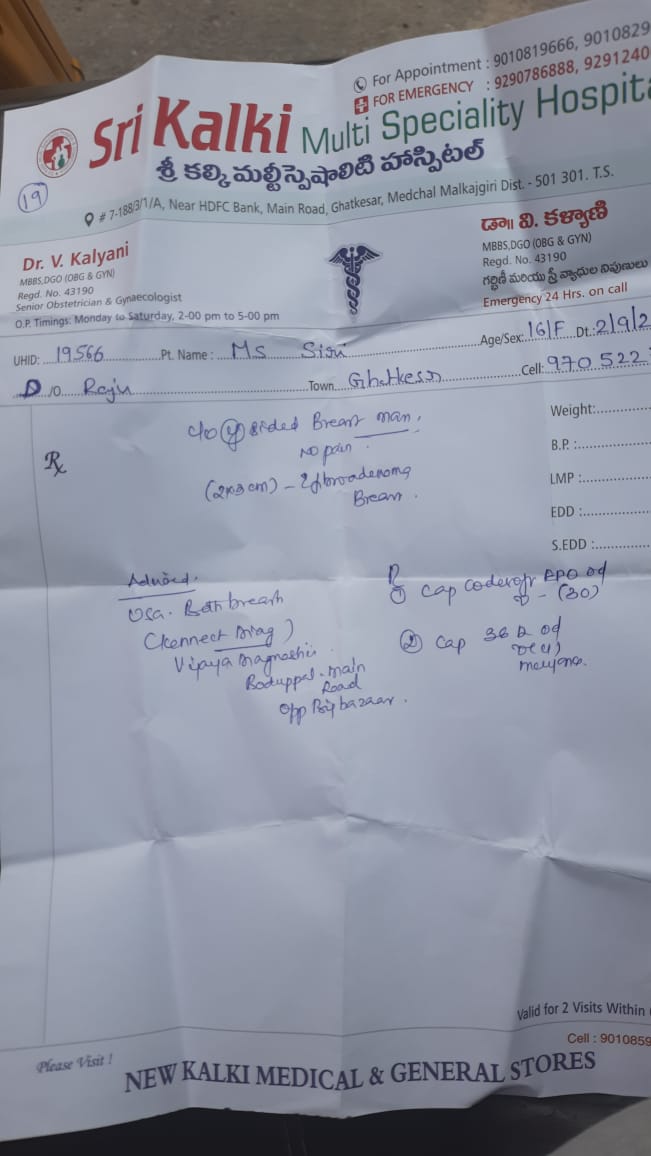 For Appointment : 9010819666, 9010829
FOR EMERGENCY : 9290786888, 9291240
Sri Kalki Multi Speciality Hospita
శ్రీ కల్కి మల్టీస్పెషాలిటి హాస్పిటల్
19
# 7-188/3/1/A, Near HDFC Bank, Main Road, Ghatkesar, Medchal Malkajgiri Dist. - 501 301. T.S.
Dr. V. Kalyani
MBBS,DGO (OBG & GYN)
Regd. No. 43190
Senior Obstetrician & Gynaecologist
O.P. Timings: Monday to Saturday, 2-00 pm to 5-00 pm
డా॥ వి. కళ్యాణి
MBBS,DGO (OBG & GYN)
Regd. No. 43190
గర్భిణీ మరియు స్త్రీ వ్యాధుల నిపుణులు
Emergency 24 Hrs. on call
UHID: 19566 Pt. Name : Ms Siri Age/Sex: 16/F Dt: 2/9/2
D /O Raju Town Ghatkesar Cell: 970 522
Rx
Weight:
B.P. :
LMP :
EDD :
S.EDD :
c/o sided Breast
No pain
(2x3 cm) - fibroadenoma
Breast.
Advised.
Usg. Both breast
Diag)
Vijaya Diagnostic
Boduppal. main
Road
opp Big bazaar.
Cap EPO od
- (30)
② Cap od
Valid for 2 Visits Within
Cell : 9010859
Please Visit !
NEW KALKI MEDICAL & GENERAL STORES